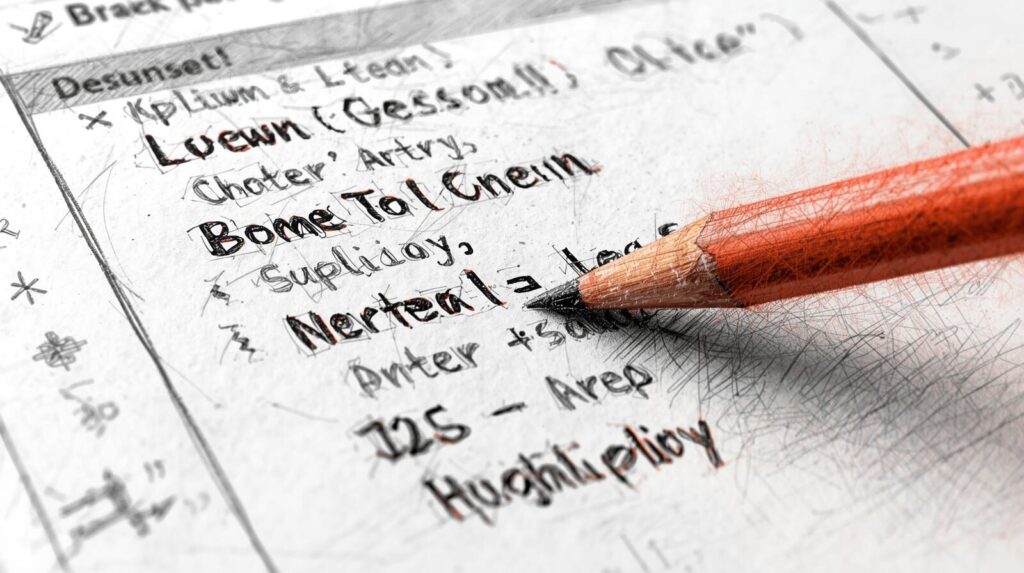 Brack
Desunset!
Kpliwm & L-tean!
Luewn (Gessom!!)
Choter' Artry,
Bome Tol Cneiin
Supliday,
Nerten l =
Dnter
J25 – Arep
Hughliplioy